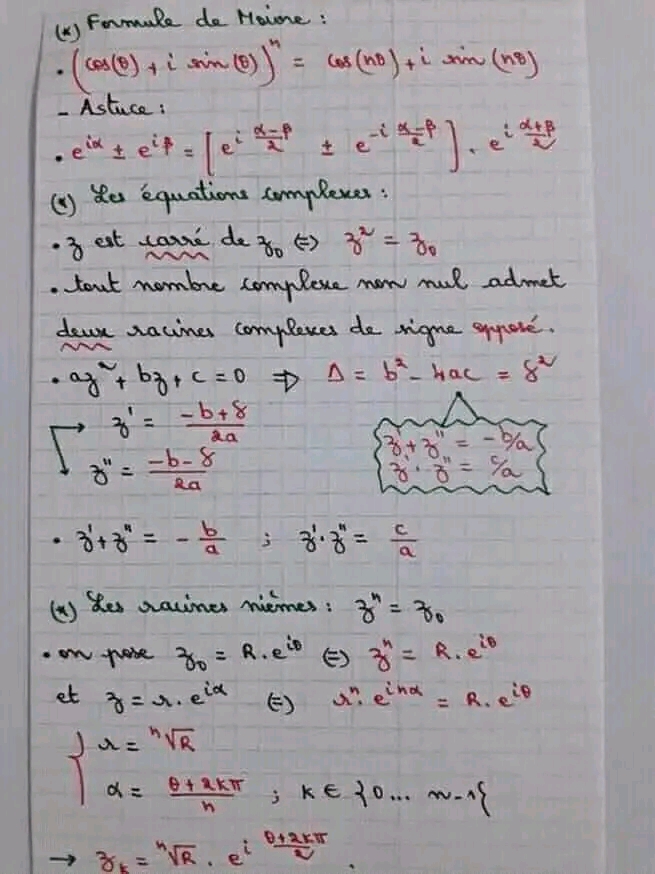 (*) Formule de Moivre :
• (cos(θ) + i sin(θ))ⁿ = cos(nθ) + i sin(nθ)
- Astuce :
• e^{iα} ± e^{iβ} = [e^{i (α-β)/2} ± e^{-i (α-β)/2}] . e^{i (α+β)/2}
(*) Les équations complexes :
• z est carré de z₀ ⇔ z² = z₀
• tout nombre complexe non nul admet
deux racines complexes de signe opposé.
• az² + bz + c = 0 ⇒ Δ = b² - 4ac = δ²
z' = (-b+δ)/2a
z'' = (-b-δ)/2a
z'+z'' = -b/a
z'.z'' = c/a
• z'+z'' = -b/a ; z'.z'' = c/a
(*) Les racines nièmes : zⁿ = z₀
• on pose z₀ = R.e^{iθ} ⇔ zⁿ = R.e^{iθ}
et z = r.e^{iα} ⇔ rⁿ.e^{inα} = R.e^{iθ}
{ r = ⁿ√R
α = (θ+2kπ)/n ; k ∈ {0... n-1{
→ z_k = ⁿ√R . e^{i (θ+2kπ)/2} .